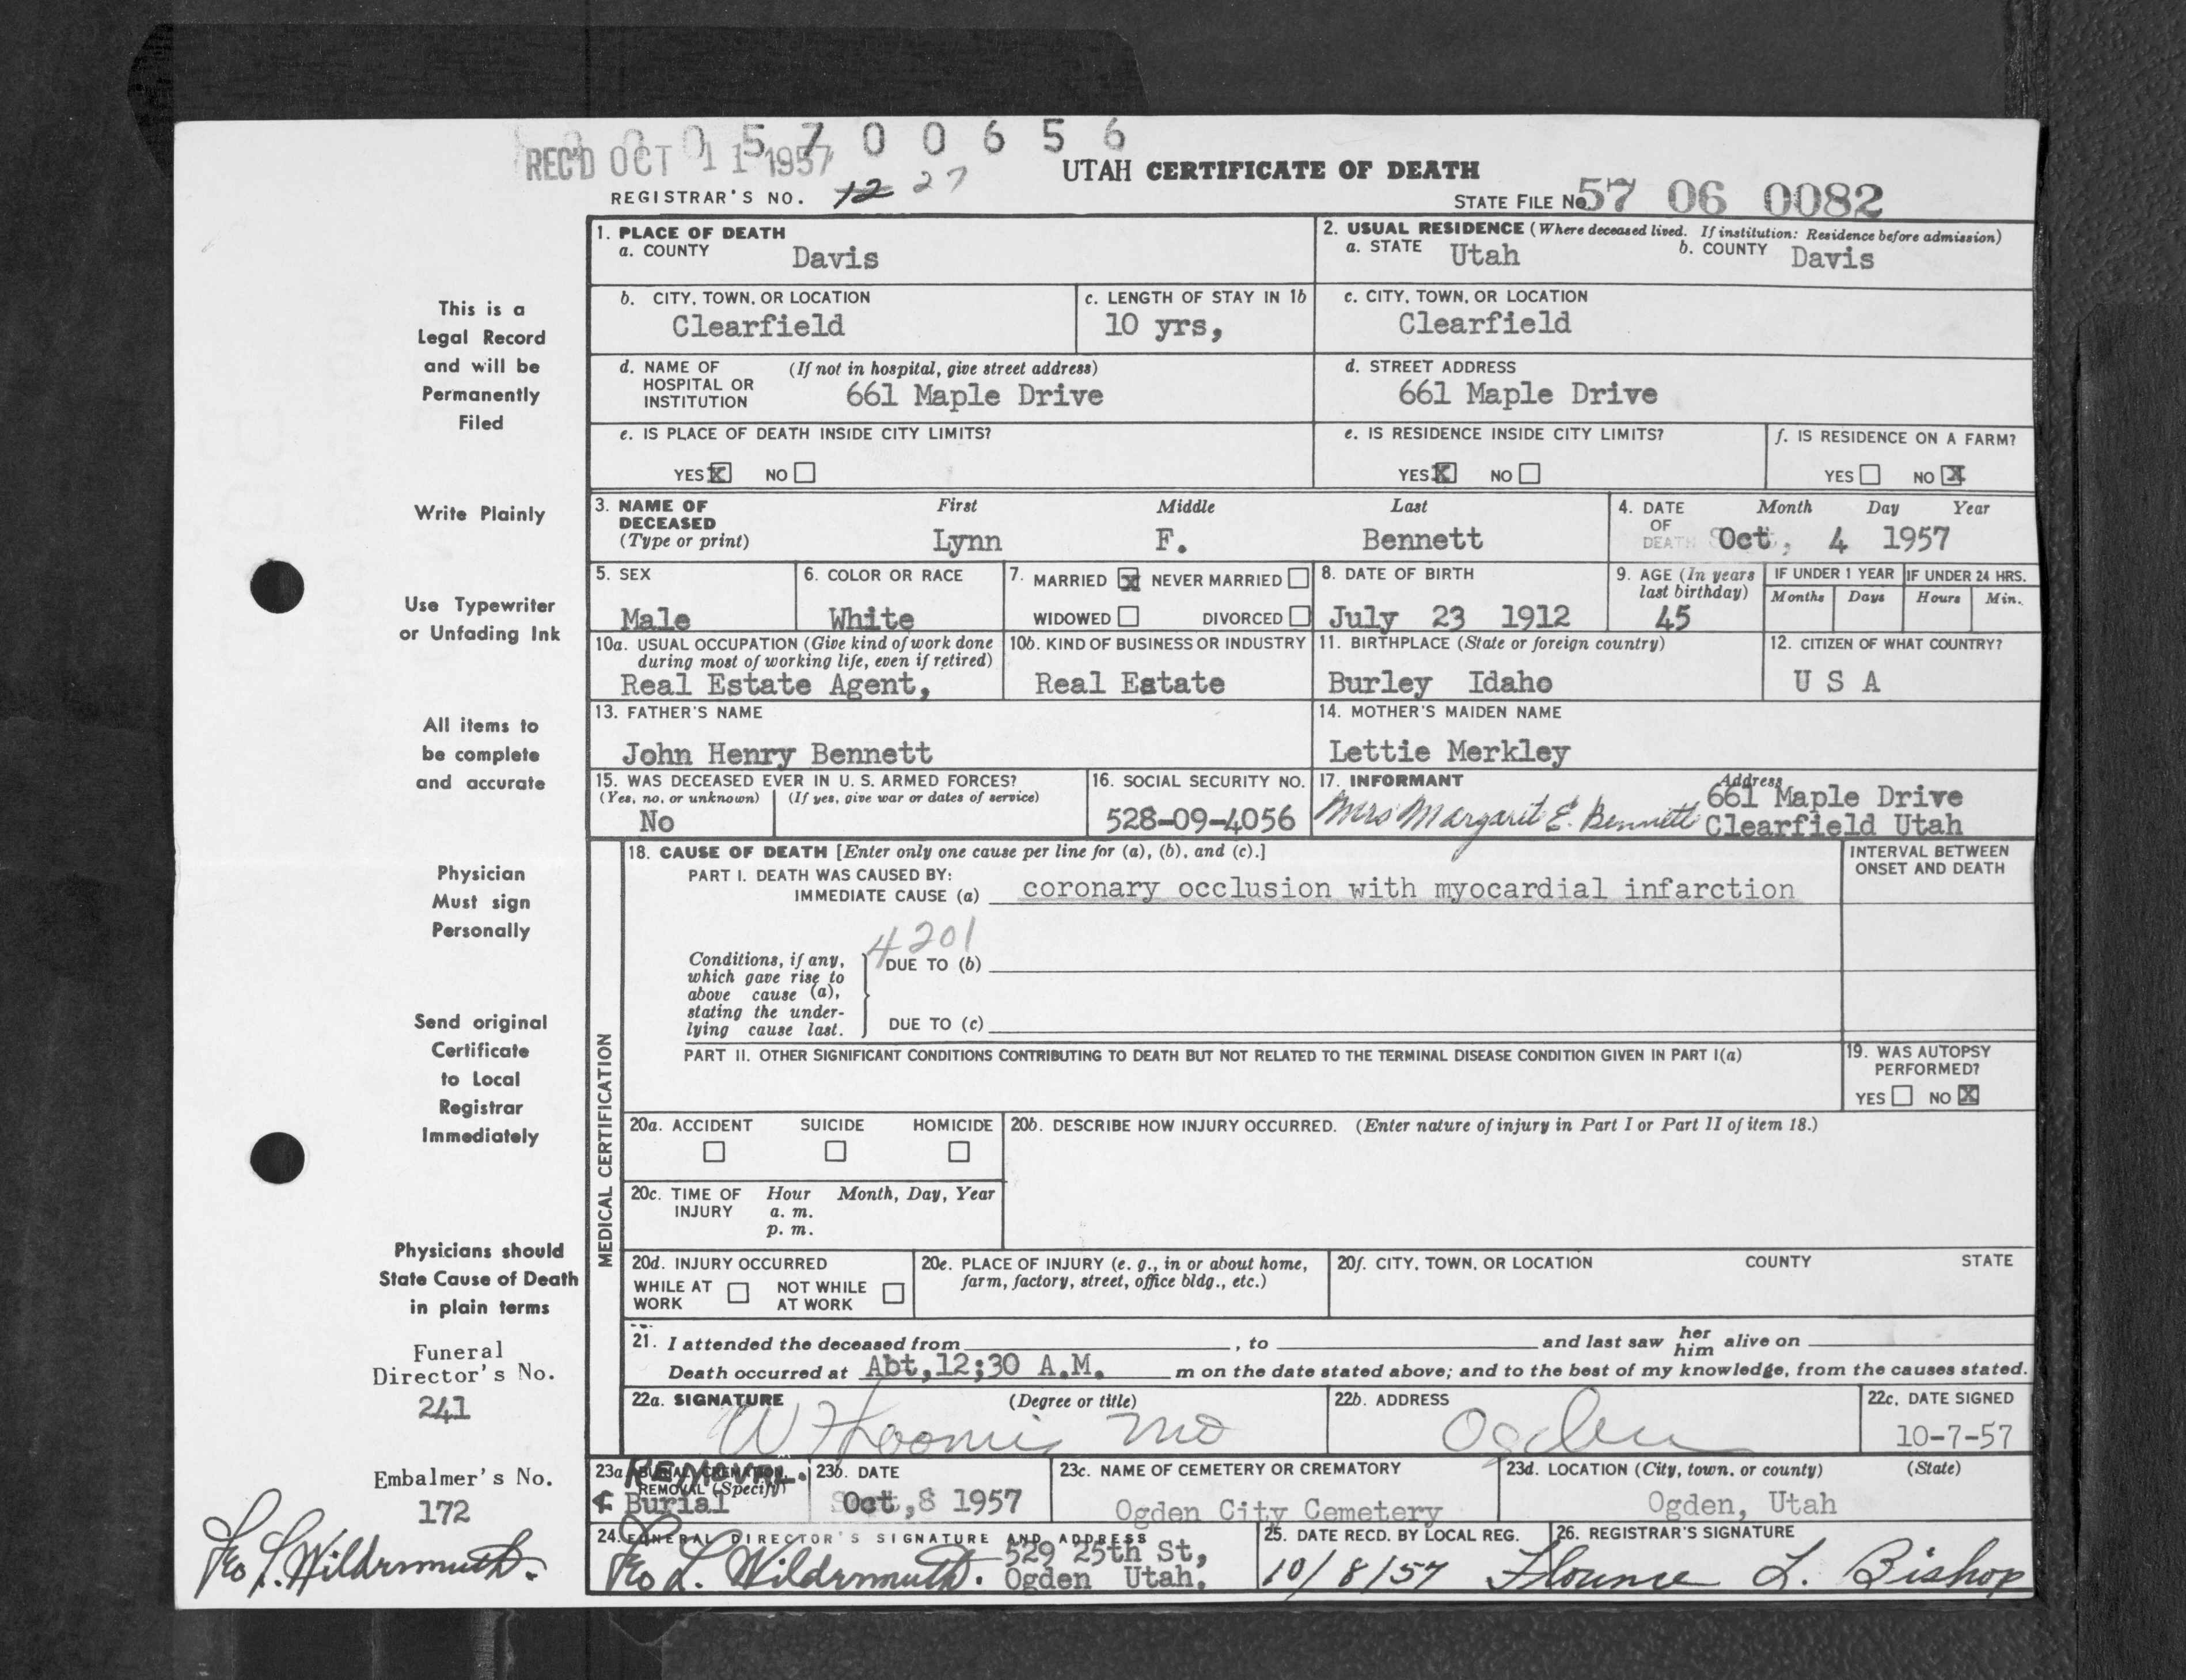 0 0 0 5 7 0 0 6 5 6
REC'D OCT 11 1957
UTAH CERTIFICATE OF DEATH
REGISTRAR'S NO. 12 27
STATE FILE No 57 06 0082
This is a
Legal Record
and will be
Permanently
Filed
Write Plainly
Use Typewriter
or Unfading Ink
All items to
be complete
and accurate
Physician
Must sign
Personally
Send original
Certificate
to Local
Registrar
Immediately
Physicians should
State Cause of Death
in plain terms
Funeral
Director's No.
241
Embalmer's No.
172
Geo L. Wildermuth.
1. PLACE OF DEATH
a. COUNTY Davis
2. USUAL RESIDENCE (Where deceased lived. If institution: Residence before admission)
a. STATE Utah b. COUNTY Davis
b. CITY, TOWN, OR LOCATION
Clearfield
c. LENGTH OF STAY IN 1b
10 yrs,
c. CITY, TOWN, OR LOCATION
Clearfield
d. NAME OF (If not in hospital, give street address)
HOSPITAL OR
INSTITUTION 661 Maple Drive
d. STREET ADDRESS
661 Maple Drive
e. IS PLACE OF DEATH INSIDE CITY LIMITS?
YES X NO
e. IS RESIDENCE INSIDE CITY LIMITS?
YES X NO
f. IS RESIDENCE ON A FARM?
YES NO X
3. NAME OF First Middle Last
DECEASED
(Type or print) Lynn F. Bennett
4. DATE Month Day Year
OF
DEATH Oct, 4 1957
5. SEX
Male
6. COLOR OR RACE
White
7. MARRIED X NEVER MARRIED
WIDOWED DIVORCED
8. DATE OF BIRTH
July 23 1912
9. AGE (In years
last birthday)
45
IF UNDER 1 YEAR
Months Days
IF UNDER 24 HRS.
Hours Min.
10a. USUAL OCCUPATION (Give kind of work done
during most of working life, even if retired)
Real Estate Agent,
10b. KIND OF BUSINESS OR INDUSTRY
Real Estate
11. BIRTHPLACE (State or foreign country)
Burley Idaho
12. CITIZEN OF WHAT COUNTRY?
U S A
13. FATHER'S NAME
John Henry Bennett
14. MOTHER'S MAIDEN NAME
Lettie Merkley
15. WAS DECEASED EVER IN U. S. ARMED FORCES?
(Yes, no, or unknown) (If yes, give war or dates of service)
No
16. SOCIAL SECURITY NO.
528-09-4056
17. INFORMANT Address
Mrs Margaret E. Bennett 661 Maple Drive
Clearfield Utah
MEDICAL CERTIFICATION
18. CAUSE OF DEATH [Enter only one cause per line for (a), (b), and (c).]
PART I. DEATH WAS CAUSED BY:
IMMEDIATE CAUSE (a) coronary occlusion with myocardial infarction
INTERVAL BETWEEN
ONSET AND DEATH
4201
Conditions, if any,
which gave rise to
above cause (a),
stating the under-
lying cause last.
DUE TO (b)
DUE TO (c)
PART II. OTHER SIGNIFICANT CONDITIONS CONTRIBUTING TO DEATH BUT NOT RELATED TO THE TERMINAL DISEASE CONDITION GIVEN IN PART I(a)
19. WAS AUTOPSY
PERFORMED?
YES NO X
20a. ACCIDENT SUICIDE HOMICIDE
20b. DESCRIBE HOW INJURY OCCURRED. (Enter nature of injury in Part I or Part II of item 18.)
20c. TIME OF Hour Month, Day, Year
INJURY a. m.
p. m.
20d. INJURY OCCURRED
WHILE AT NOT WHILE
WORK AT WORK
20e. PLACE OF INJURY (e. g., in or about home,
farm, factory, street, office bldg., etc.)
20f. CITY, TOWN, OR LOCATION COUNTY STATE
21. I attended the deceased from , to and last saw her him alive on
Death occurred at Abt,12;30 A.M. m on the date stated above; and to the best of my knowledge, from the causes stated.
22a. SIGNATURE (Degree or title)
W H Loomis MD
22b. ADDRESS
Ogden
22c. DATE SIGNED
10-7-57
23a. BURIAL, CREMATION,
REMOVAL (Specify)
REMOVAL.
& Burial
23b. DATE
Oct,8 1957
23c. NAME OF CEMETERY OR CREMATORY
Ogden City Cemetery
23d. LOCATION (City, town, or county) (State)
Ogden, Utah
24. FUNERAL DIRECTOR'S SIGNATURE AND ADDRESS
Geo L. Wildermuth. 529 25th St,
Ogden Utah.
25. DATE RECD. BY LOCAL REG.
10/8/57
26. REGISTRAR'S SIGNATURE
Flounce L. Bishop